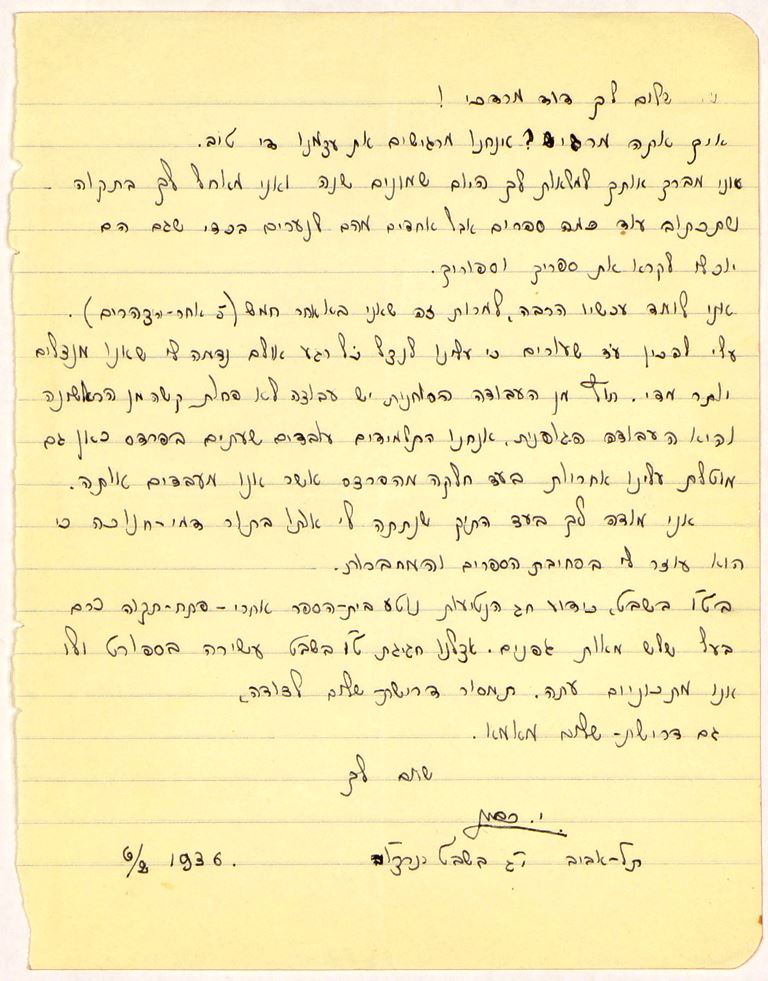 שלום לך דוד מרדכי !
איך אתה מרגיש? אנחנו מרגישים את עצמנו די טוב.
אני מברך אותך למלאות לך היום שמונים שנה ואני מאחל לך בתקוה
שתכתוב עוד כמה ספרים אבל אחדים מהם לנערים בכדי שגם הם
יוכלו לקרא את ספריך וספוריך.
אני לומד עכשיו הרבה, למרות זה שאני באחר חמש (5 אחר-הצהרים).
עלי להכין עוד שעורים כי עלינו לנצל כל רגע אולם נדמה לי שאנו מנצלים
יותר מדי. חוץ מן העבודה הרוחנית יש עבודה לא פחות קשה מן הראשונה
והיא העבודה הגופנית, אנחנו התלמידים עובדים שעתים בפרדס כאן גם
מוטלת עלינו אחריות בעד חלקה מהפרדס אשר אנו מעבדים אותה.
אני מודה לך בעד התיק שנתתה לי אותו בתור דמי-חנוכה כי
הוא עוזר לי בסחיבת הספרים והמחברות.
בט"ו בשבט, כידוע חג הנטיעות נוטע בית-הספר אחרי-פתח-תקוה כרם
בעל שלש מאות גפנים. אצלנו חגיגת ט"ו בשבט עשירה בספורט ולו
אנו מתכוננים עתה. תמסור דרישת-שלום לדודה,
גם דרישת-שלום מאמא.
שלום לך
תל-אביב י"ג בשבט תרצ"ו
6/2 1936.